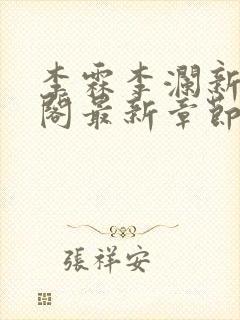 李霖李瀾新
閣最新章節
張祥安